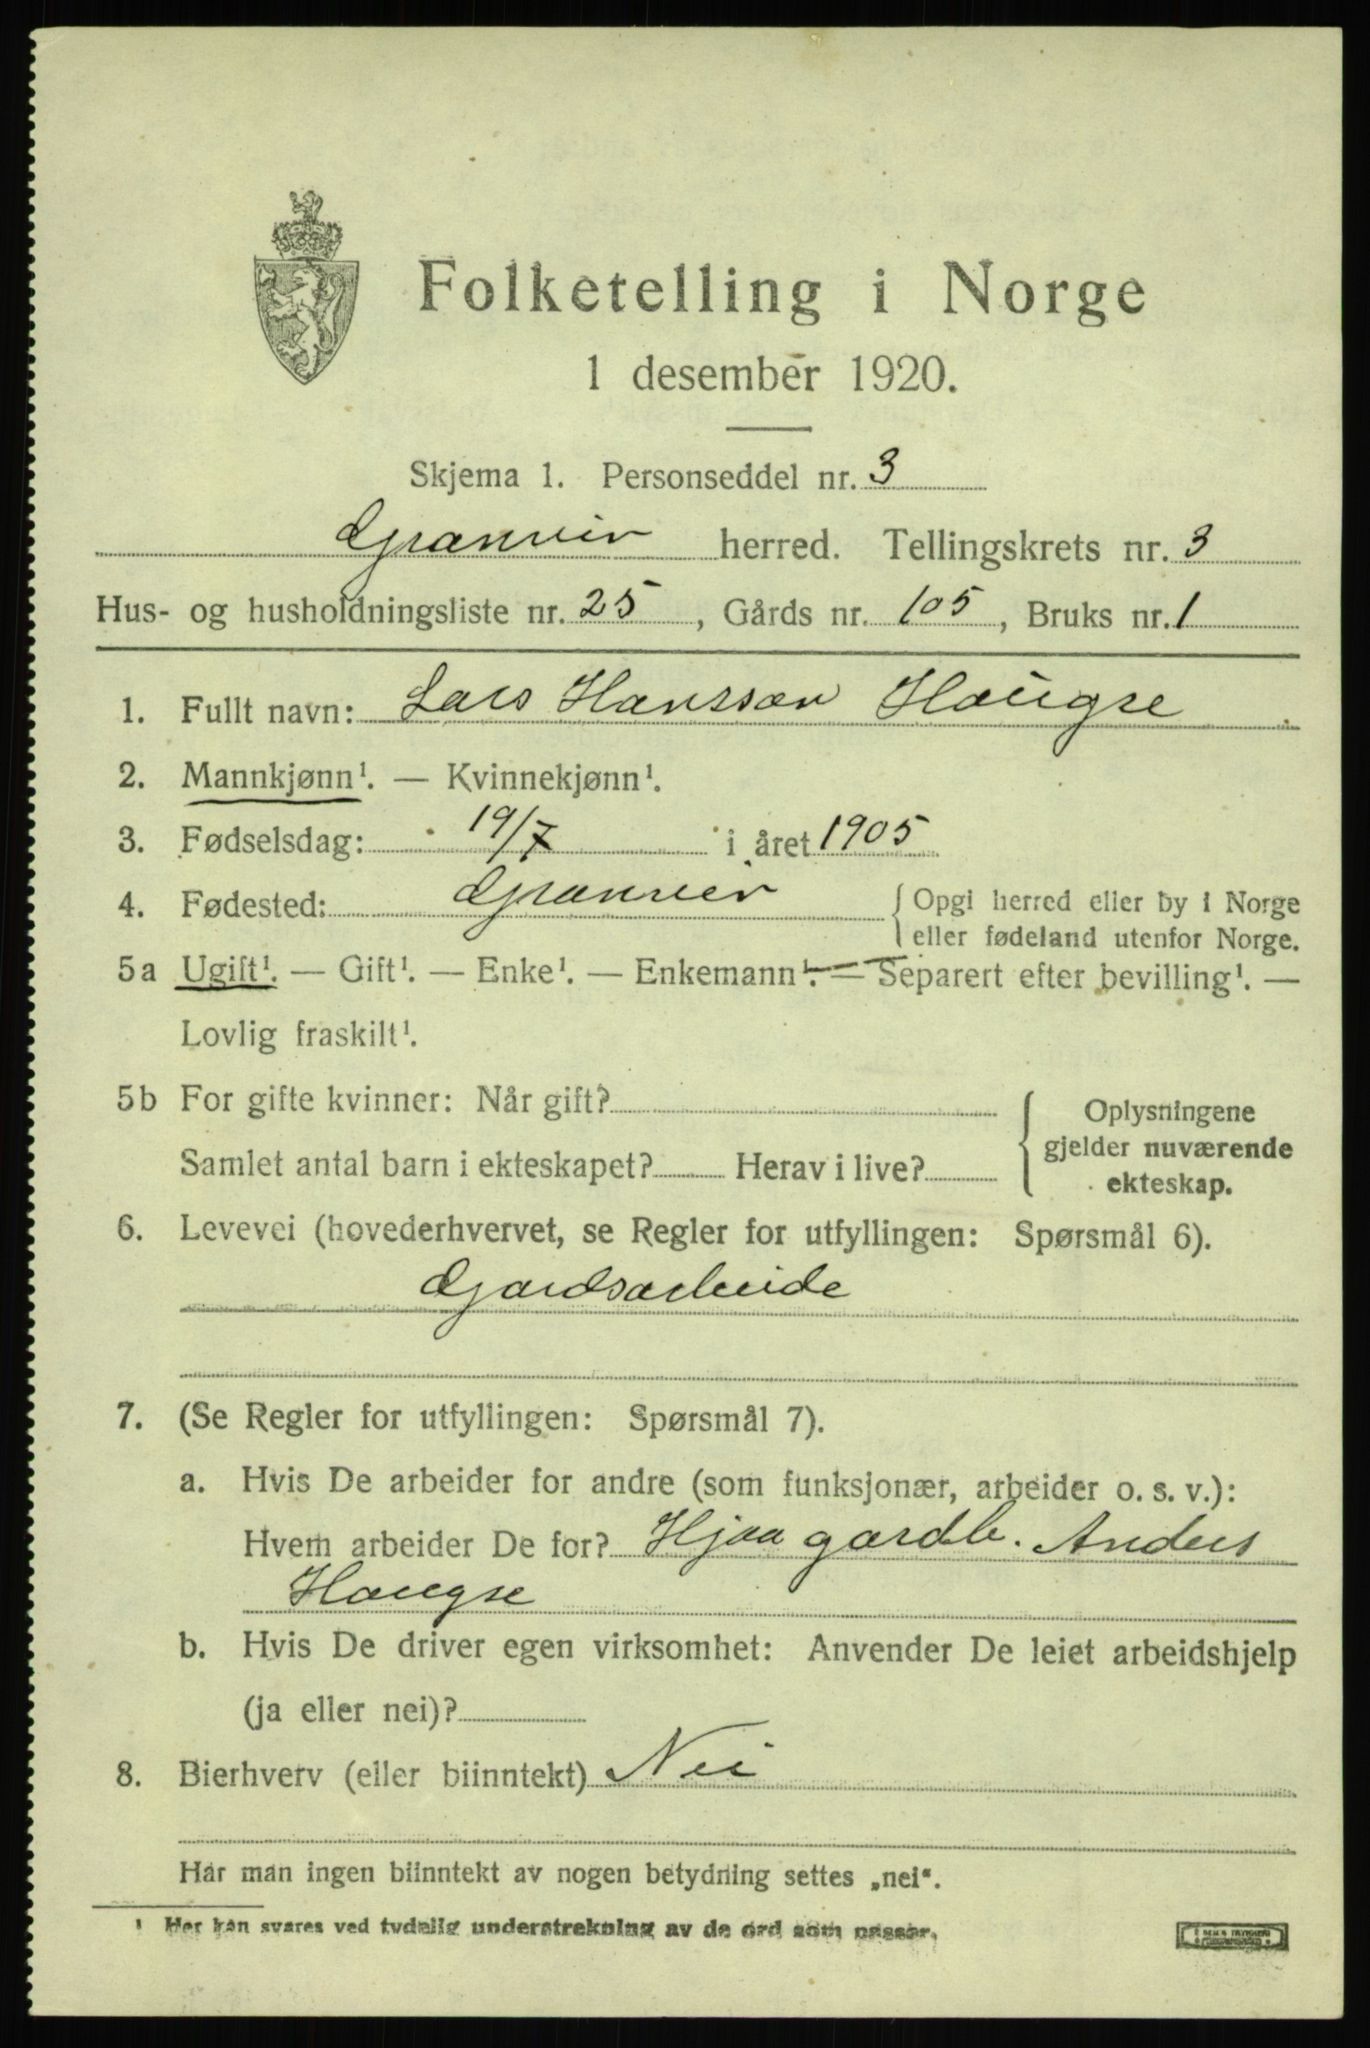 Folketelling i Norge
1 desember 1920.
Skjema 1. Personseddel nr. 3
Granvin herred. Tellingskrets nr. 3
Hus- og husholdningsliste nr. 25, Gårds nr. 105, Bruks nr. 1
1. Fullt navn: Lars Hanssøn Haugse
2. Mannkjønn¹. — Kvinnekjønn¹.
3. Fødselsdag: 19/7 i året 1905
4. Fødested: Granvin { Opgi herred eller by i Norge
eller fødeland utenfor Norge.
5a Ugift¹. — Gift¹. — Enke¹. — Enkemann¹. — Separert efter bevilling¹. —
Lovlig fraskilt¹.
5b For gifte kvinner: Når gift?
Samlet antal barn i ekteskapet? Herav i live?
Oplysningene
gjelder nuværende
ekteskap.
6. Levevei (hovederhvervet, se Regler for utfyllingen: Spørsmål 6).
Gardsarbeide
7. (Se Regler for utfyllingen: Spørsmål 7).
a. Hvis De arbeider for andre (som funksjonær, arbeider o. s. v.):
Hvem arbeider De for? Hjaa gardb. Anders
Haugse
b. Hvis De driver egen virksomhet: Anvender De leiet arbeidshjelp
(ja eller nei)?
8. Bierhverv (eller biinntekt) Nei
Har man ingen biinntekt av nogen betydning settes „nei“.
¹ Her kan svares ved tydelig understrekning av de ord som passer.